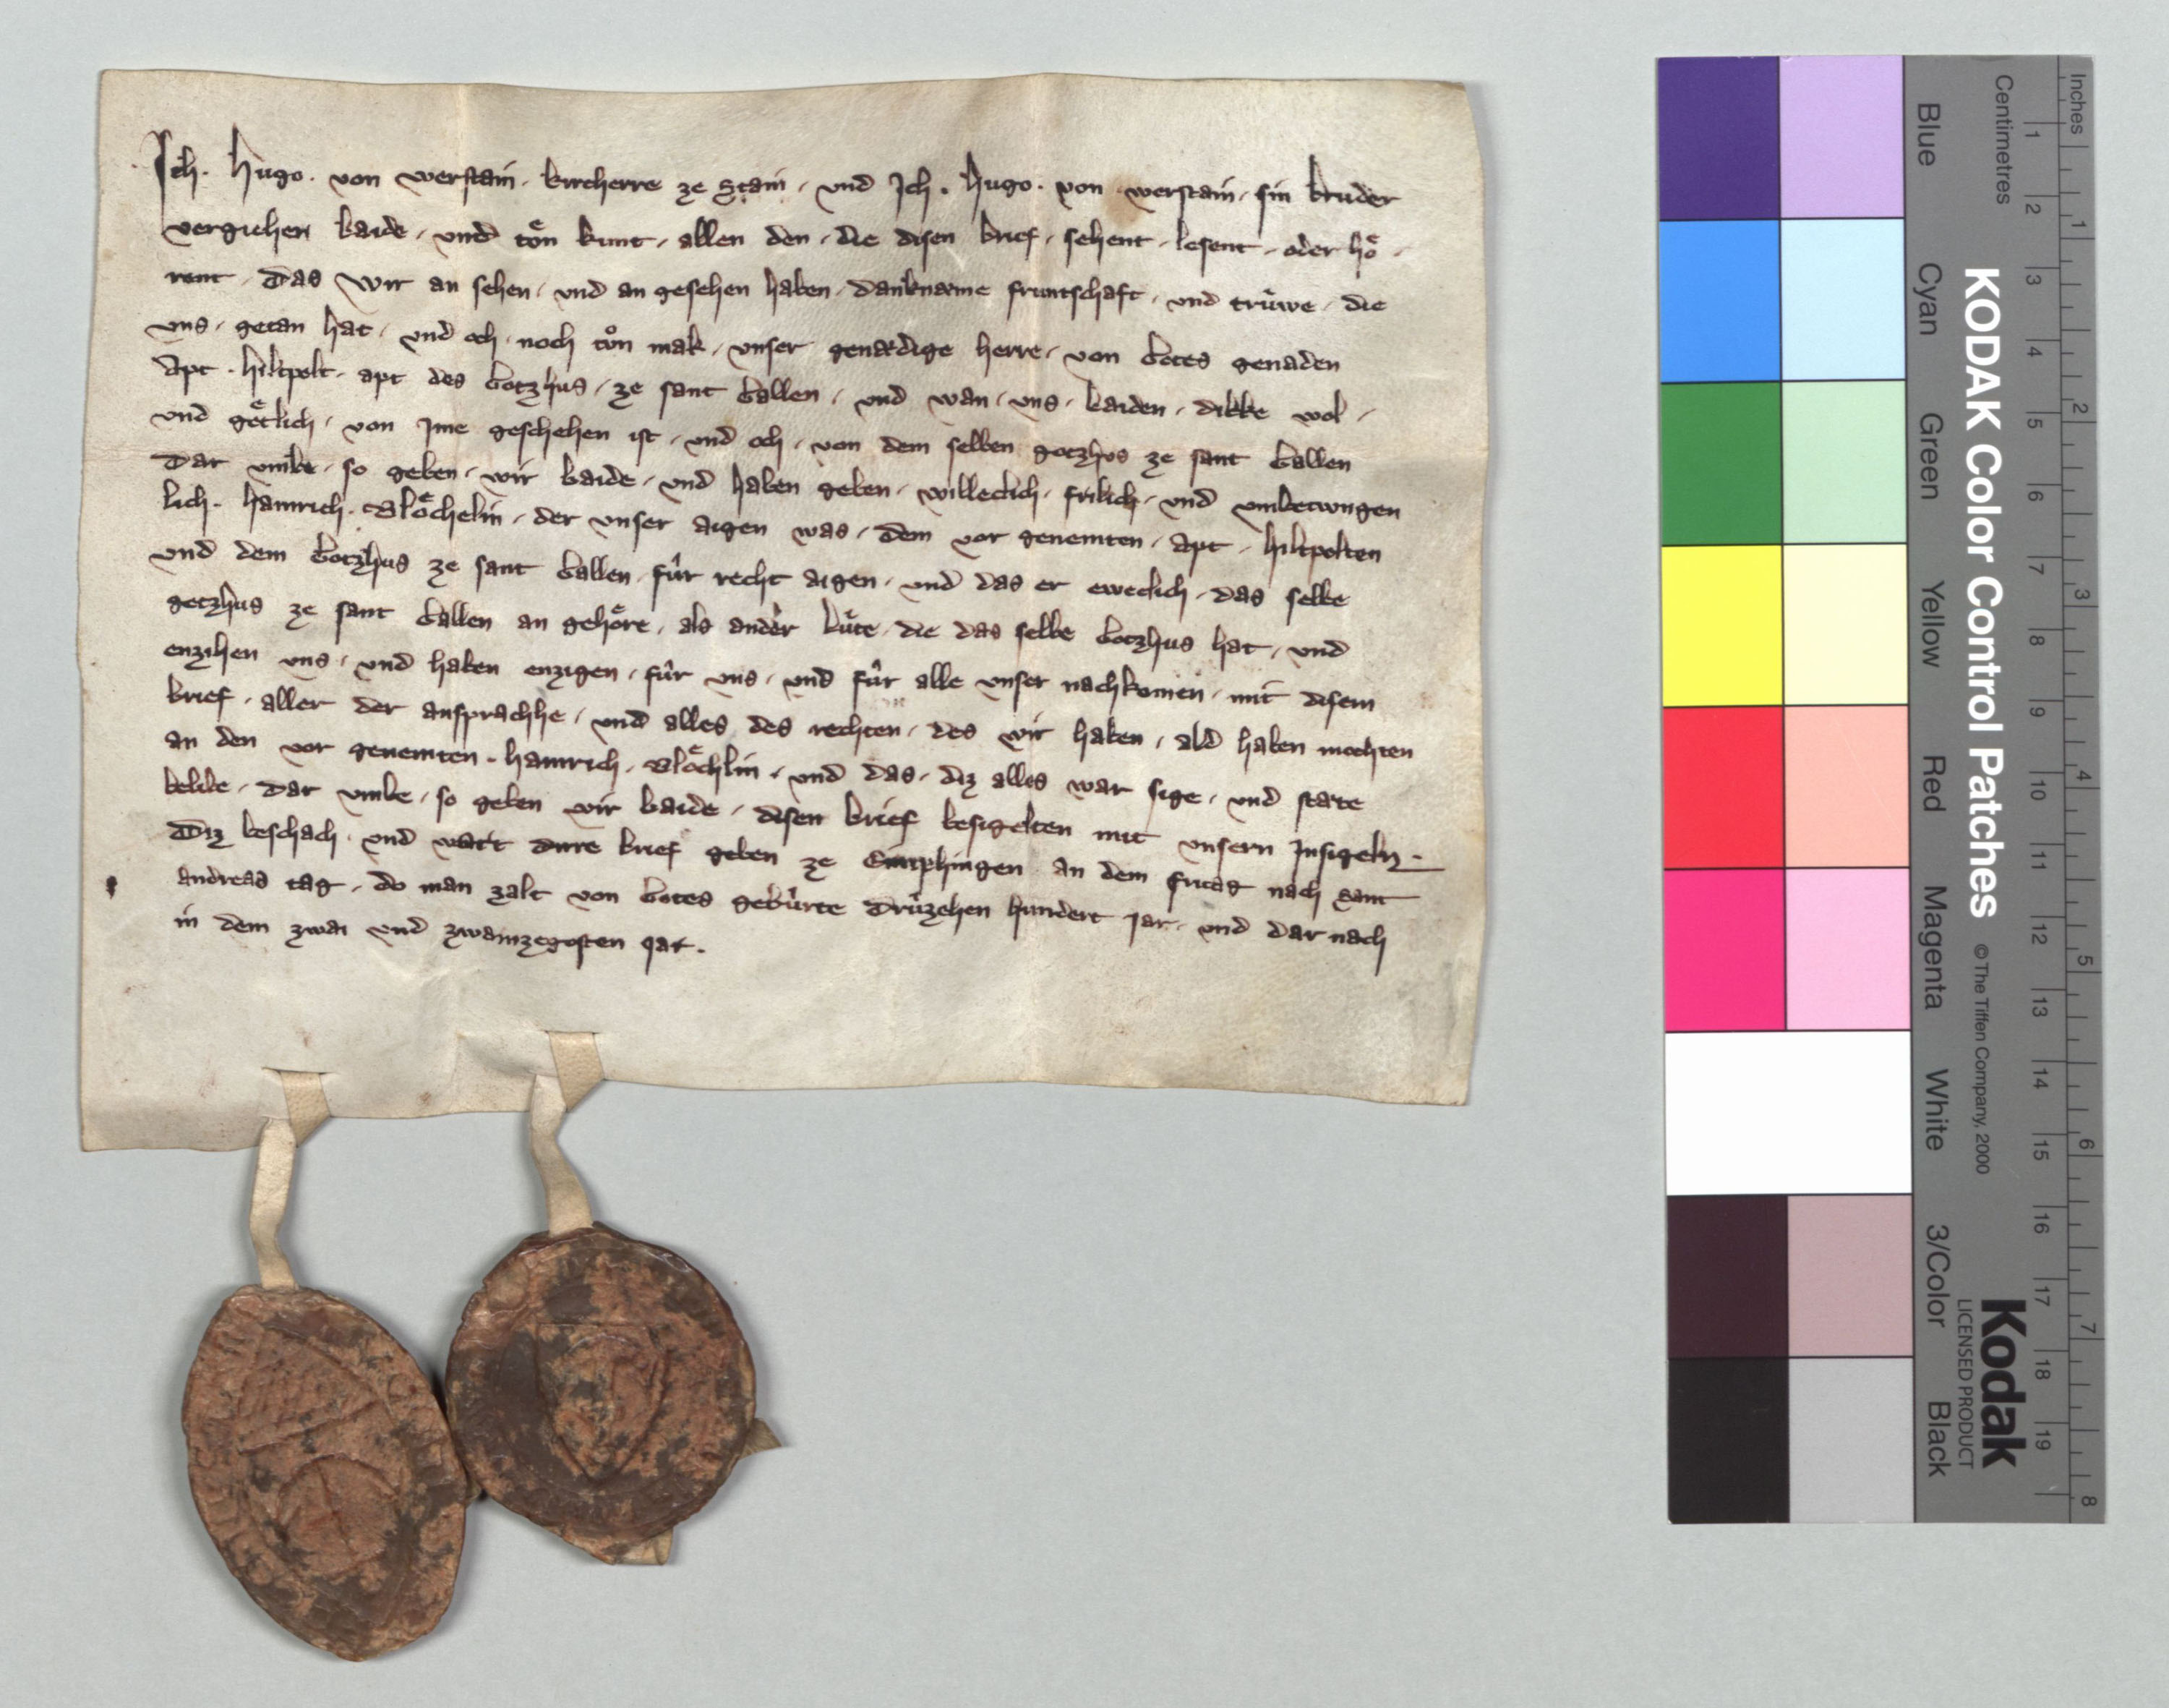 Ich . Hugo . von werstain . kircherre ze Stain . vnd Ich . Hugo . von werstain . sin bruder
veriehen baide . vnd tuͤn kunt . allen den . die disen brief . sehent . lesent . oder hoͤ -
rent . Das wir an sehen . vnd an gesehen haben . danknæme fruntschaft . vnd trûwe . die
vns . getan hat . vnd och . noch tuͦn mak . vnser genædige herre . von Gotes genaden
Apt . hiltpolt . apt des Gotzhus . ze sant Gallen . vnd wan . vns . baiden . dikke wol .
vnd guͤtlich . von Ime geschehen ist . vnd och . von dem selben gotzhus ze sant Gallen
Dar vmbe . so geben . wir baide . vnd haben geben . willeclich . frilich . vnd vmbetwngen
lich . Hainrich . Bloͤchelin . der vnser aigen was . dem vor genemten . Apt . hiltpolten
vnd dem Gotzhus ze sant Gallen . fûr recht aigen . vnd das er eweclich . das selbe
gotzhus ze sant Gallen an gehoͤre . als ander lûte . die das selbe Gotzhus hat . vnd
enzihen vns . vnd haben enzigen . fûr vns . vnd fûr alle vnser nachkomen . mit disem
brief . aller der ansprachhe . vnd alles des rechten . des wir haben . ald haben mochten
an den vor genemten . Hainrich . Bloͤchlin . vnd das . diz alles war sige . vnd stæte
belibe . Dar vmbe . so geben wir baide . disen brief besigelten mit vnsern Insigeln .
Diz beschach . vnd wart dirre brief geben ze Emphingen an dem fritag nach sant
andreas tag . do man zalt von Gotes gebûrte Drûzehen hundert Jar . vnd dar nach
in dem zwai vnd zwainzegosten jar .
KODAK Color Control Patches © The Tiffen Company, 2000
Kodak
LICENSED PRODUCT
Inches 1 2 3 4 5 6 7 8
Centimetres 1 2 3 4 5 6 7 8 9 10 11 12 13 14 15 16 17 18 19
Blue Cyan Green Yellow Red Magenta White 3/Color Black